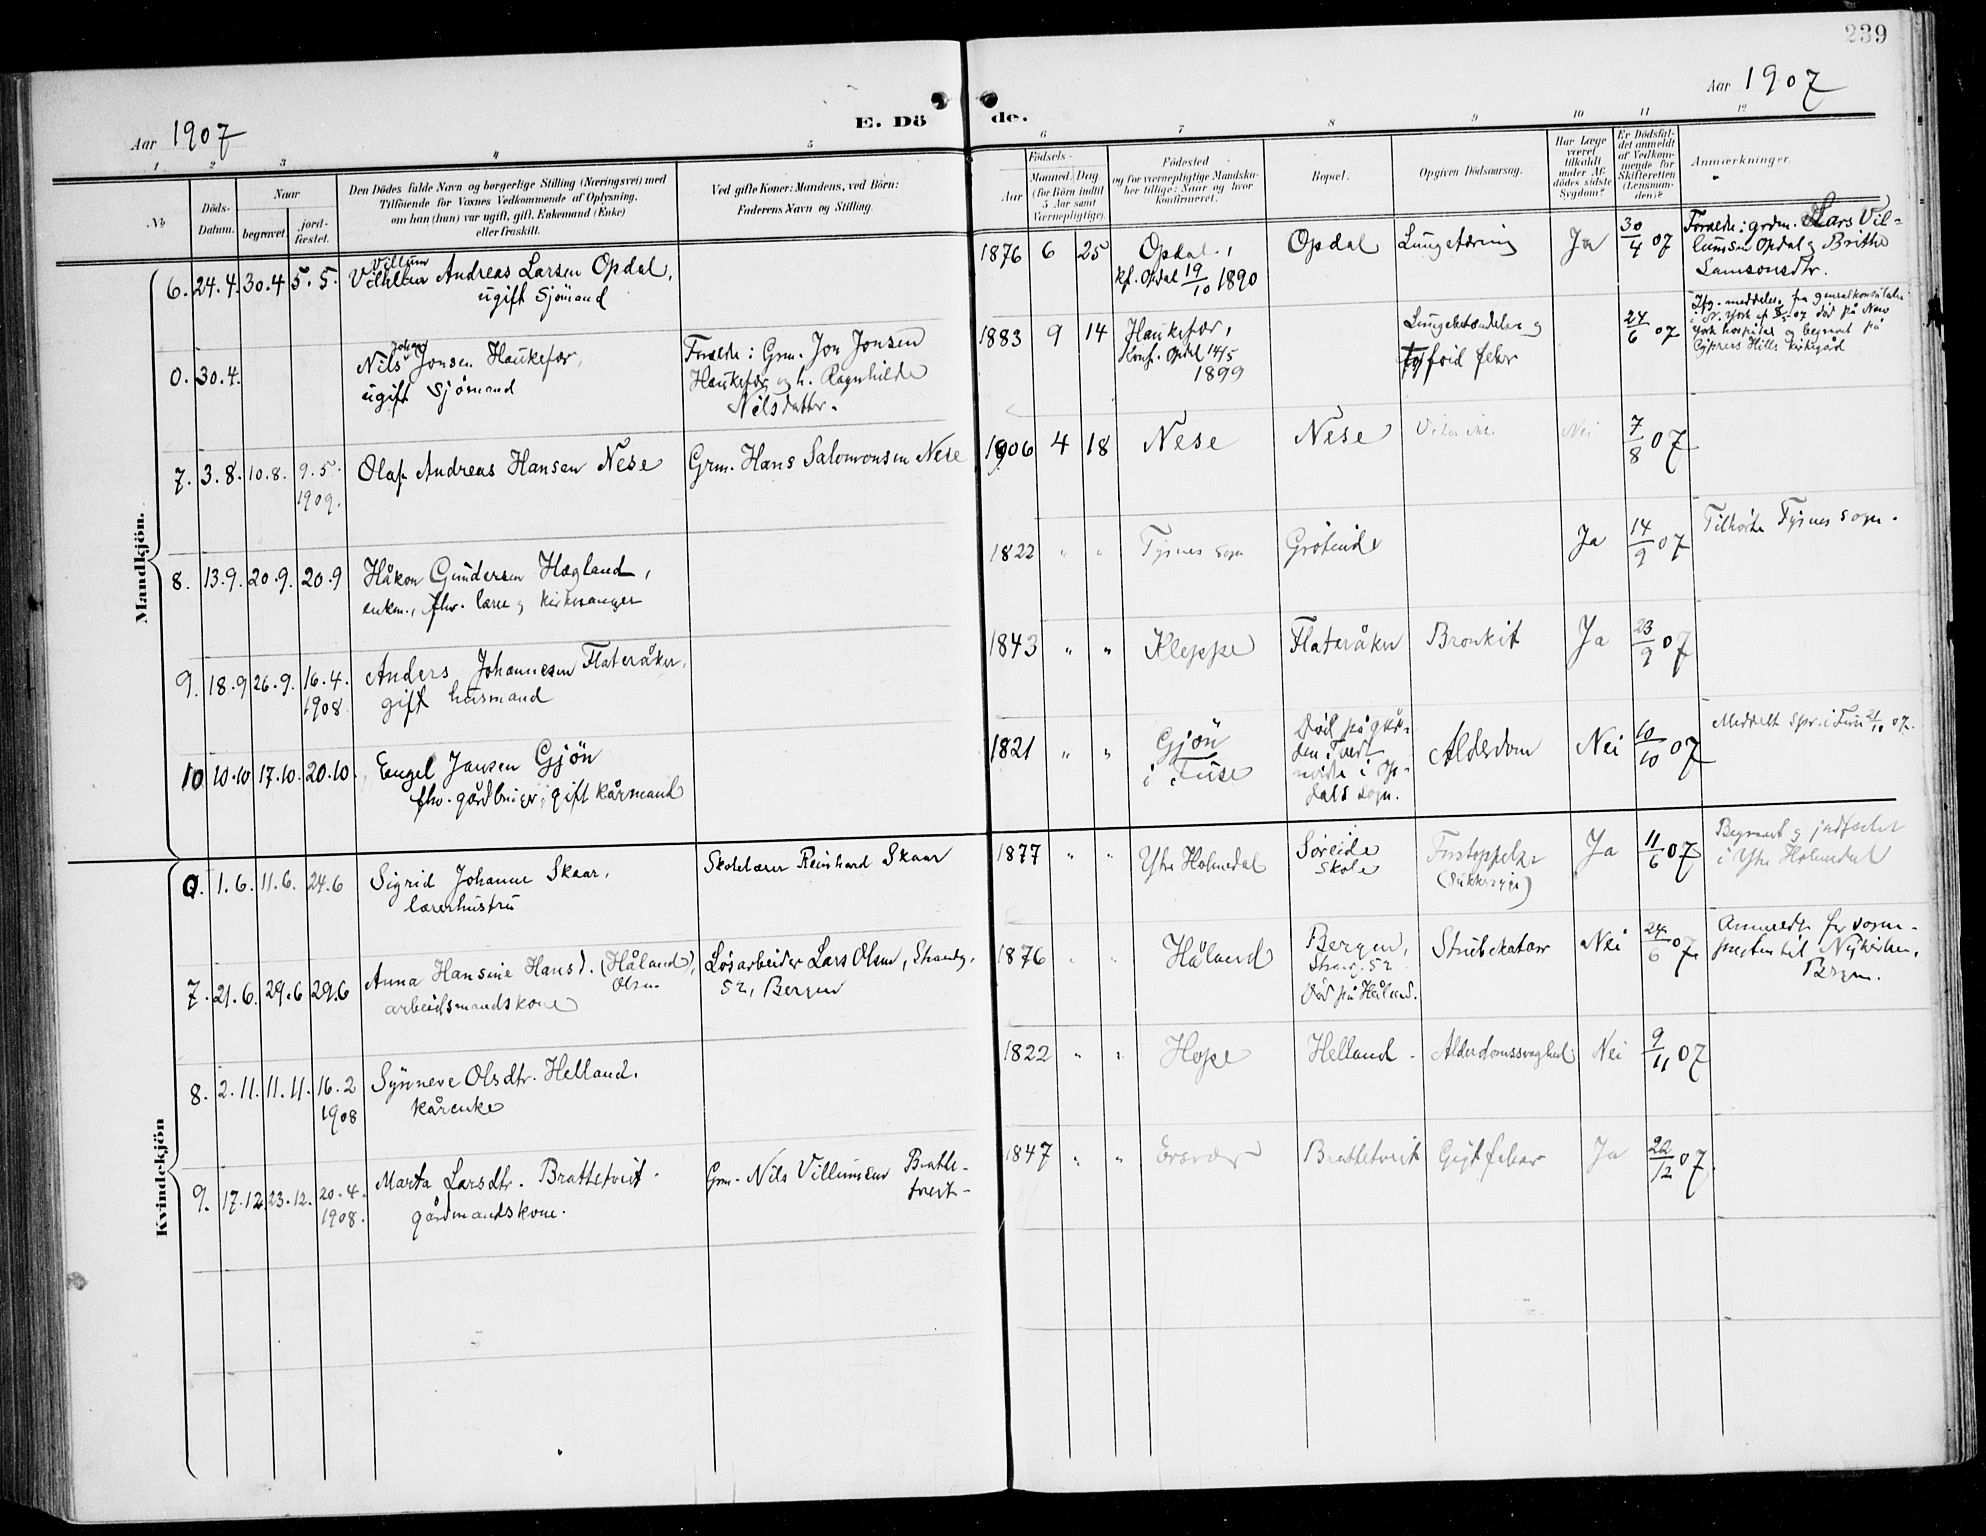 239
Aar 1907
E. Dö de.
Aar 1907
1 2 3 4 5
No
Döds-
Datum.
Naar
begravet.
jord-
fæstet.
Den Dödes fulde Navn og borgerlige Stilling (Næringsvei) med
Tilföiende for Voxnes Vedkommende af Oplysning,
om han (hun) var ugift, gift, Enkemand (Enke)
eller fraskilt.
Ved gifte Koner: Mandens, ved Börn:
Faderens Navn og Stilling.
6 7 8 9 10 11 12
Födsels-
Aar
Maaned. Dag
(for Börn indtil
5 Aar samt
Værnepligtige).
Födested
og for værnepligtige Mandsko-
ber tillige: Naar og hvor
konfirmeret.
Bopæl.
Opgiven Dödsaarsag.
Har Læge
været
tilkaldt
under Af-
dödes sidste
Sygdom?
Er Dödsfal-
det anmeldt
af Vedkom-
mende for
Skifteretten
(Lensman-
den)?
Anmærkninger.
Mandkjön.
6. 24.4. 30.4 5.5. Villum Andreas Larsen Opdal,
ugift sjömand
1876 6 25 Opdal.,
kf. Opdal 19/10 1890
Opdal Lungetæring Ja 30/4 07
Forælde: grdm. Lars Vil-
lumsen Opdal og Brithe
Samsonsdtr.
0. 30.4. Nils Johan Jonsen Haukefær,
ugift sjömand
Forælde: Grm. Jon Jonsen
Haukefær og h. Ragnhilde
Nilsdatter.
1883 9 14 Haukefær,
Konf. Opdal 14/5
1899
Lungebetændelse og
tyfoid feber
24/6 07
Ifg. meddelse fra generalkonsulatet
i N. York af 8/5 07 död på New
York hospital og begravet på
Cypress Hills kirkegård
7. 3.8. 10.8. 9.5.
1909.
Olaf Andreas Hansen Nese Grm. Hans Salomonsen Nese
1906 4 18 Nese Nese Nei 7/8 07
8. 13.9. 20.9. 20.9 Håkon Gundersen Hægland,
enkem., fhv. lærer og kirkesanger
1822 " " Tysnes sogn Ja 14/9 07 Tilhörte Tysnes sogn.
9. 18.9 26.9. 16.4.
1908
Anders Johannesen Flateråker,
gift husmand
1843 " " Kleppe Flateråker Bronkit Ja 23/9 07
10 10.10 17.10. 20.10. Engel Jansen Gjön
fhv. gårdbruger, gift kårmand
1821 " " Gjön
i Fuse
Död på går-
den Tveit-
i Op-
dals sogn.
Alderdom Nei 10/10 07
Meddelt spr. i Fuse 21/10 07.
Kvindekjön
0. 1.6. 11.6. 24.6 Sigrid Johanne Skaar,
lærerhustru
Skolelærer Reinhard Skaar
1877 " " Ytre Holmedal Söreide
skole
Forstoppelse
Ja 11/6 07
Begravet og jordfæstet
i Ytre Holmedal
7. 21.6. 29.6 29.6 Anna Hansine Hansd. (Håland),
Olsen
arbeidsmandskone
Lösarbeider Lars Olsen, Strandg.
52, Bergen
1876 " " Håland Bergen,
Strandg. 52
död på Håland.
Strubekatar Nei 24/6 07
Anmeldt for sogne-
presten til Nykirken,
Bergen.
8. 2.11. 11.11. 16.2
1908
Synneve Olsdtr. Helland.
kårenke
1822 " " Hope Helland Alderdomssvaghed Nei 9/11 07
9. 17.12 23.12. 20.4.
1908.
Marta Larsdtr. Brattetveit.
gårdmandskone.
Grm. Nils Villumsen Bratte-
tveit-
1847 " " Ersvær Brattetveit Gigtfeber Ja 22/12 07.